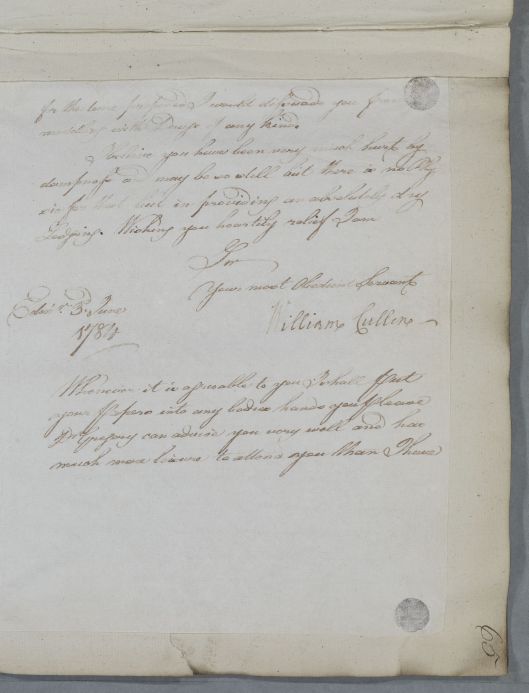 for the time proposed I would dissuade you from
medling with Drugs of any kind.
I believe you have been very much hurt by
dampness and may be so still but there is no The
in for that but in providing an absolutely dry
Lodging. Wishing you heartily relief I am
Sir
Your most Obedient Servant
William Cullen
Edinr. 3 June
1784
Whenever it is agreeable to you I shall put
your papers into any bodies hands you please
Dr Gregory can advise you very well and has
much more leisure to attend you than I have
65